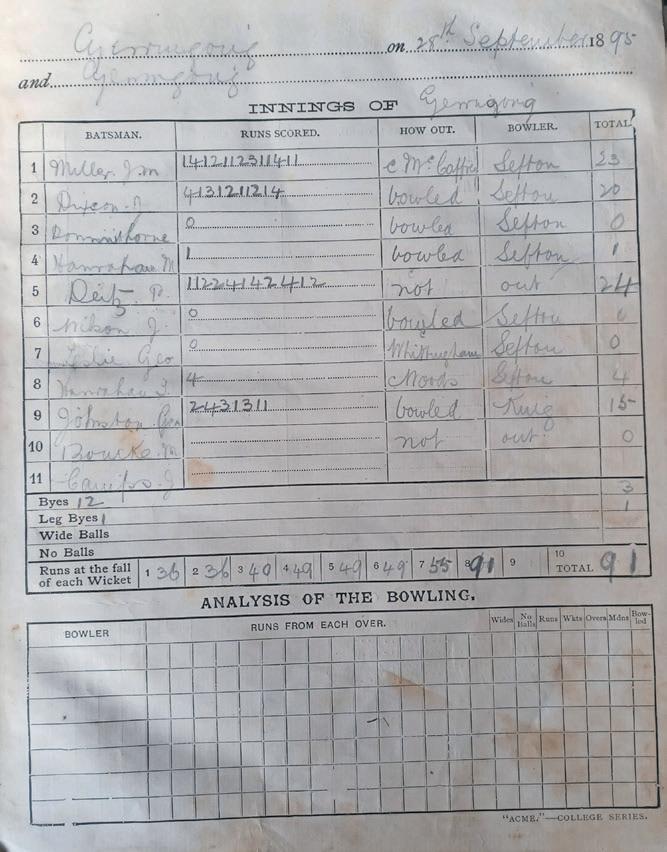 Gerringong on 28th September 1895
and Gerringong
INNINGS OF Gerringong
BATSMAN. RUNS SCORED. HOW OUT. BOWLER. TOTAL
1 Miller J.m 141211231141 c McCaffrie Sefton 23
2 Dixon 4131211214 bowled Sefton 20
3 0 bowled Sefton 0
4 Hanrahan M 1 bowled Sefton 1
5 Deitz P. 11224142412 not out 24
6 Wilson J. 0 bowled Sefton 0
7 Leslie Geo 0 Whittingham Sefton 0
8 Hanrahan 4 c Woods Sefton 4
9 Johnston Geo 2431311 bowled King 15
10 Bourke M not out 0
11
Byes 12 3
Leg Byes 1 1
Wide Balls
No Balls
Runs at the fall of each Wicket 1 36 2 36 3 40 4 49 5 49 6 49 7 55 8 91 9 10 TOTAL 91
ANALYSIS OF THE BOWLING.
BOWLER RUNS FROM EACH OVER. Wides No Balls Runs Wkts Overs Mdns Bowled
"ACME."—COLLEGE SERIES.